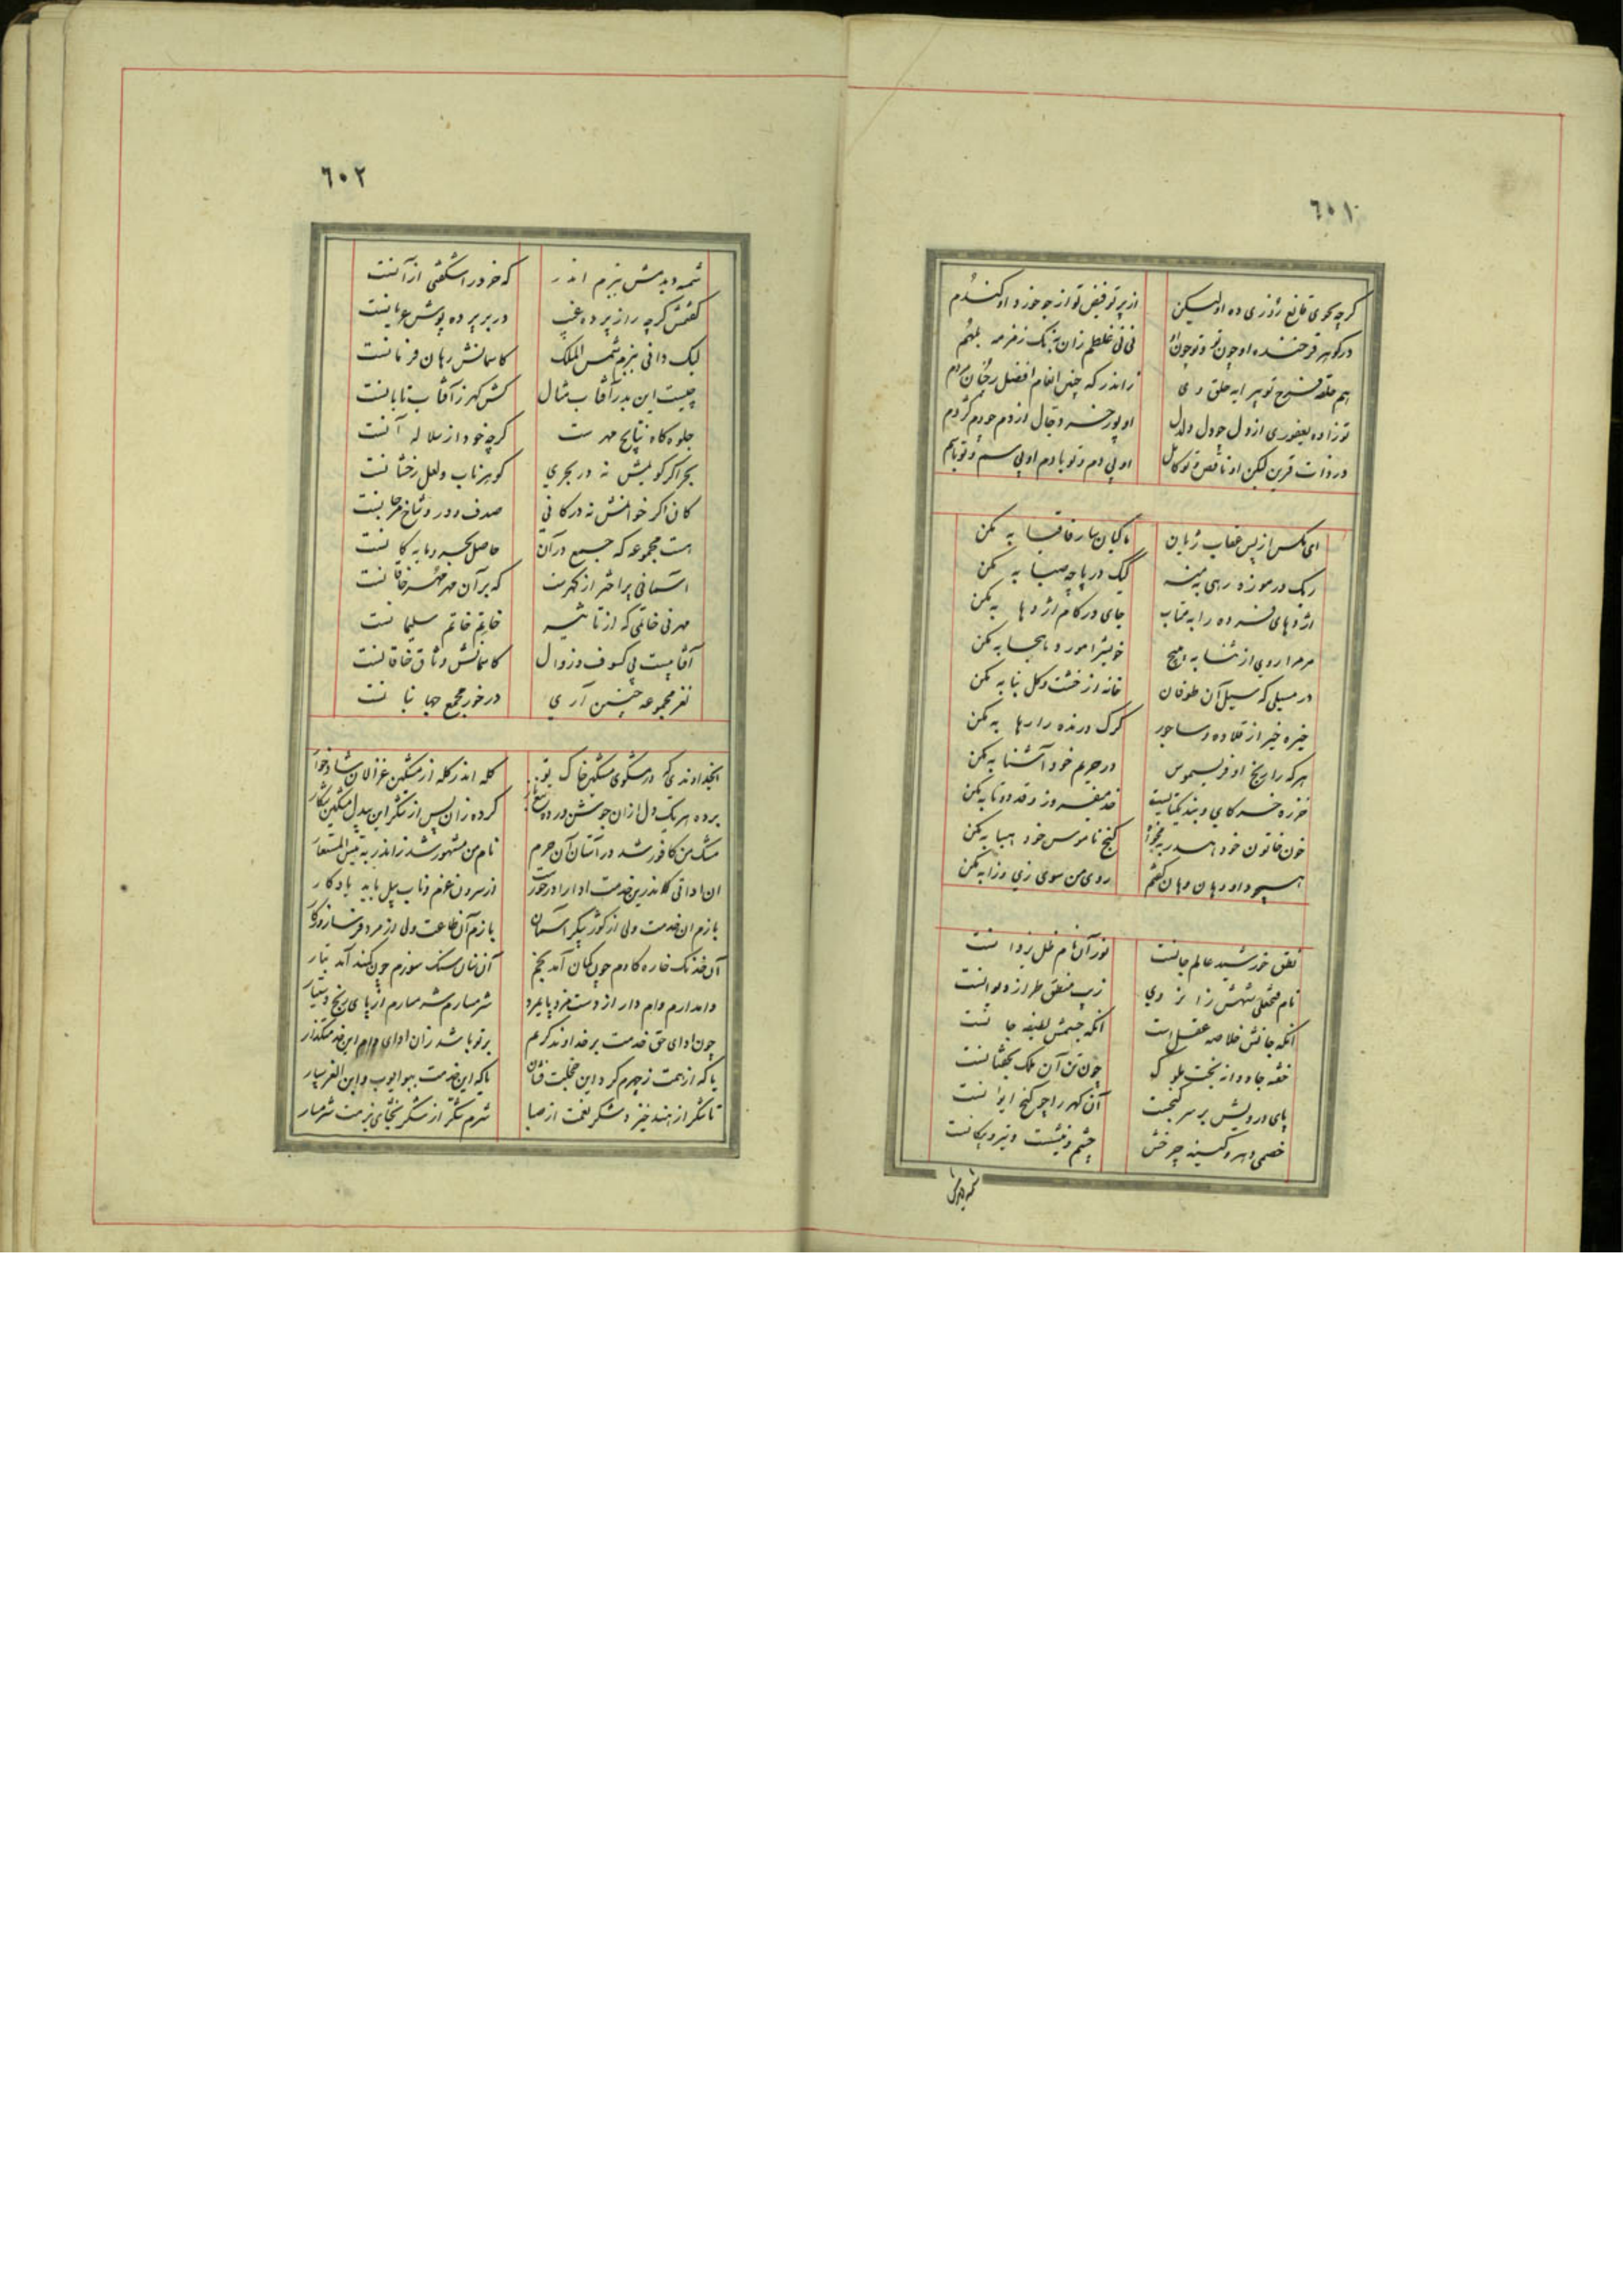 ٦٠١
گرچه بجوی قانع روزی ده او لیکن
از پر تو فیض تو از جو خوزد او گندم
در گوهر فرخنده او چون تو و تو چون او
نی نی غلطم زان
هم حلقه تو پیرایه حلق وی
زاندر که چنین انعام افضل
تو زاده یعفوری از دل چو دل دلدل
او پور خر دجال از دم چو دم کژدم
در ذات قرین لیکن او ناقص و تو کامل
او بی دم و تو با دم او بی سم و تو با سم
ای مگس از پس عقاب ژیان
ماکیان سار قافیا به مکن
ریک در موزه رهی به منه
کیک در پاچه صبا به مکن
اژدهای فسرده را به متاب
جای در کام اژدها به مکن
مر مرا روی از ثنا به مپیچ
خویش را مورد هجا به مکن
در مسیلی که سیل آن طوفان
خانه از خشت و گل بنا به مکن
خیره خیر از قلاده و ساجور
گرگ درنده را رها به مکن
هر که را ریخ او فریسموس
در حریم خود آشنا به مکن
خرزه خر کای و بند یکتا نیست
قد دو تا به مکن
خون خاتون خود هدر به مخواه
گنج ناموس خود هبا به مکن
هیچ داد دهان وهان گفتم
روی من سوی زی وزا به مکن
نطق خورشید عالم جانست
نور آن نام ظل یزدانست
نام فتحعلی شهش زانروی
زیب منطق طراز دیوانست
آنکه جانش خلاصه عقل است
آنکه جسمش لطیفه جانست
خفته جاودانه بخت ملوک
چون تن آن ملک بجنبانست
پای درویش بر سر گنجست
آن گهر را چو گنج ایوانست
خصمی دهر و کینه چرخش
چشم و نیشست و تیر و پیکانست
شمه دیدمش
٦٠٢
شمه دیدمش ببزم اندر
که خرد را شگفتی از آنست
گفتمش گرچه راز پرده غیب
در بر پرده پوش عریانست
لیک دانی ببزم شمس الملک
کاسمانش رهان فرمانست
چیست این بدر آفتاب مثال
کش گهر ز آفتاب تابانست
جلوه گاه نتایج مهر ست
گرچه خود از سلاله آنست
بحر اگر گویمش نه در بحری
گوهر ناب و لعل رخشانست
کان اگر خوانمش نه در کانی
صدف و در و شاخ مرجانست
هست مجموعه که جمیع در آن
حاصل بحر و مایه کانست
آسمانی پر اختر از گهرست
که بر آن مهر مهر خاقانست
مهر نی خاتمی که از تاثیر
خاتم خاتم سلیمانست
آفتابیست بی کسوف و زوال
کاسمانش وثاق خاقانست
نغز مجموعه چنین آری
در خور مجمع جهانبانست
ایخداوندی که در مشکوی مشکین خاک تو
گله اندر گله از مشکین غزالان شاد خوار
برده هر یک دل از آن جوشش
کرده زان پس از تنکر این بیدل مشکین شکار
مشک من کافور شد در آستان آن حرم
نام من مشهور شد زاندر به قیس المستعار
ان اداتی کاندرین خدمت ادا را در خورست
از سرون غرم و ناب پیل باید یادگار
یازم آن خدمت ولی از گوژ پیکر آسمان
یازم آن طاعت ولی از مرد فرسا روزگار
آن خدنگ خاره کادم چون کمان آمد بخم
آن سنان سنگ سوزم چون کمند آمد بتار
وامدارم وام دار از دست مزد پایمرد
شرمسارم شرمسارم از پای رنج دستیار
چون ادای حق خدمت بر خداوند کرم
بر تو باشد زان ادای وام این خدمتگذار
یا که از همت ز چهرم گرد این خجلت فشان
یا که این خدمت ببو ایوب و ابن الغر سپار
تا شکر از هند خیزد شکر نعمت از صبا
شرم شکر از شکر بخشای بزمت شرمسار